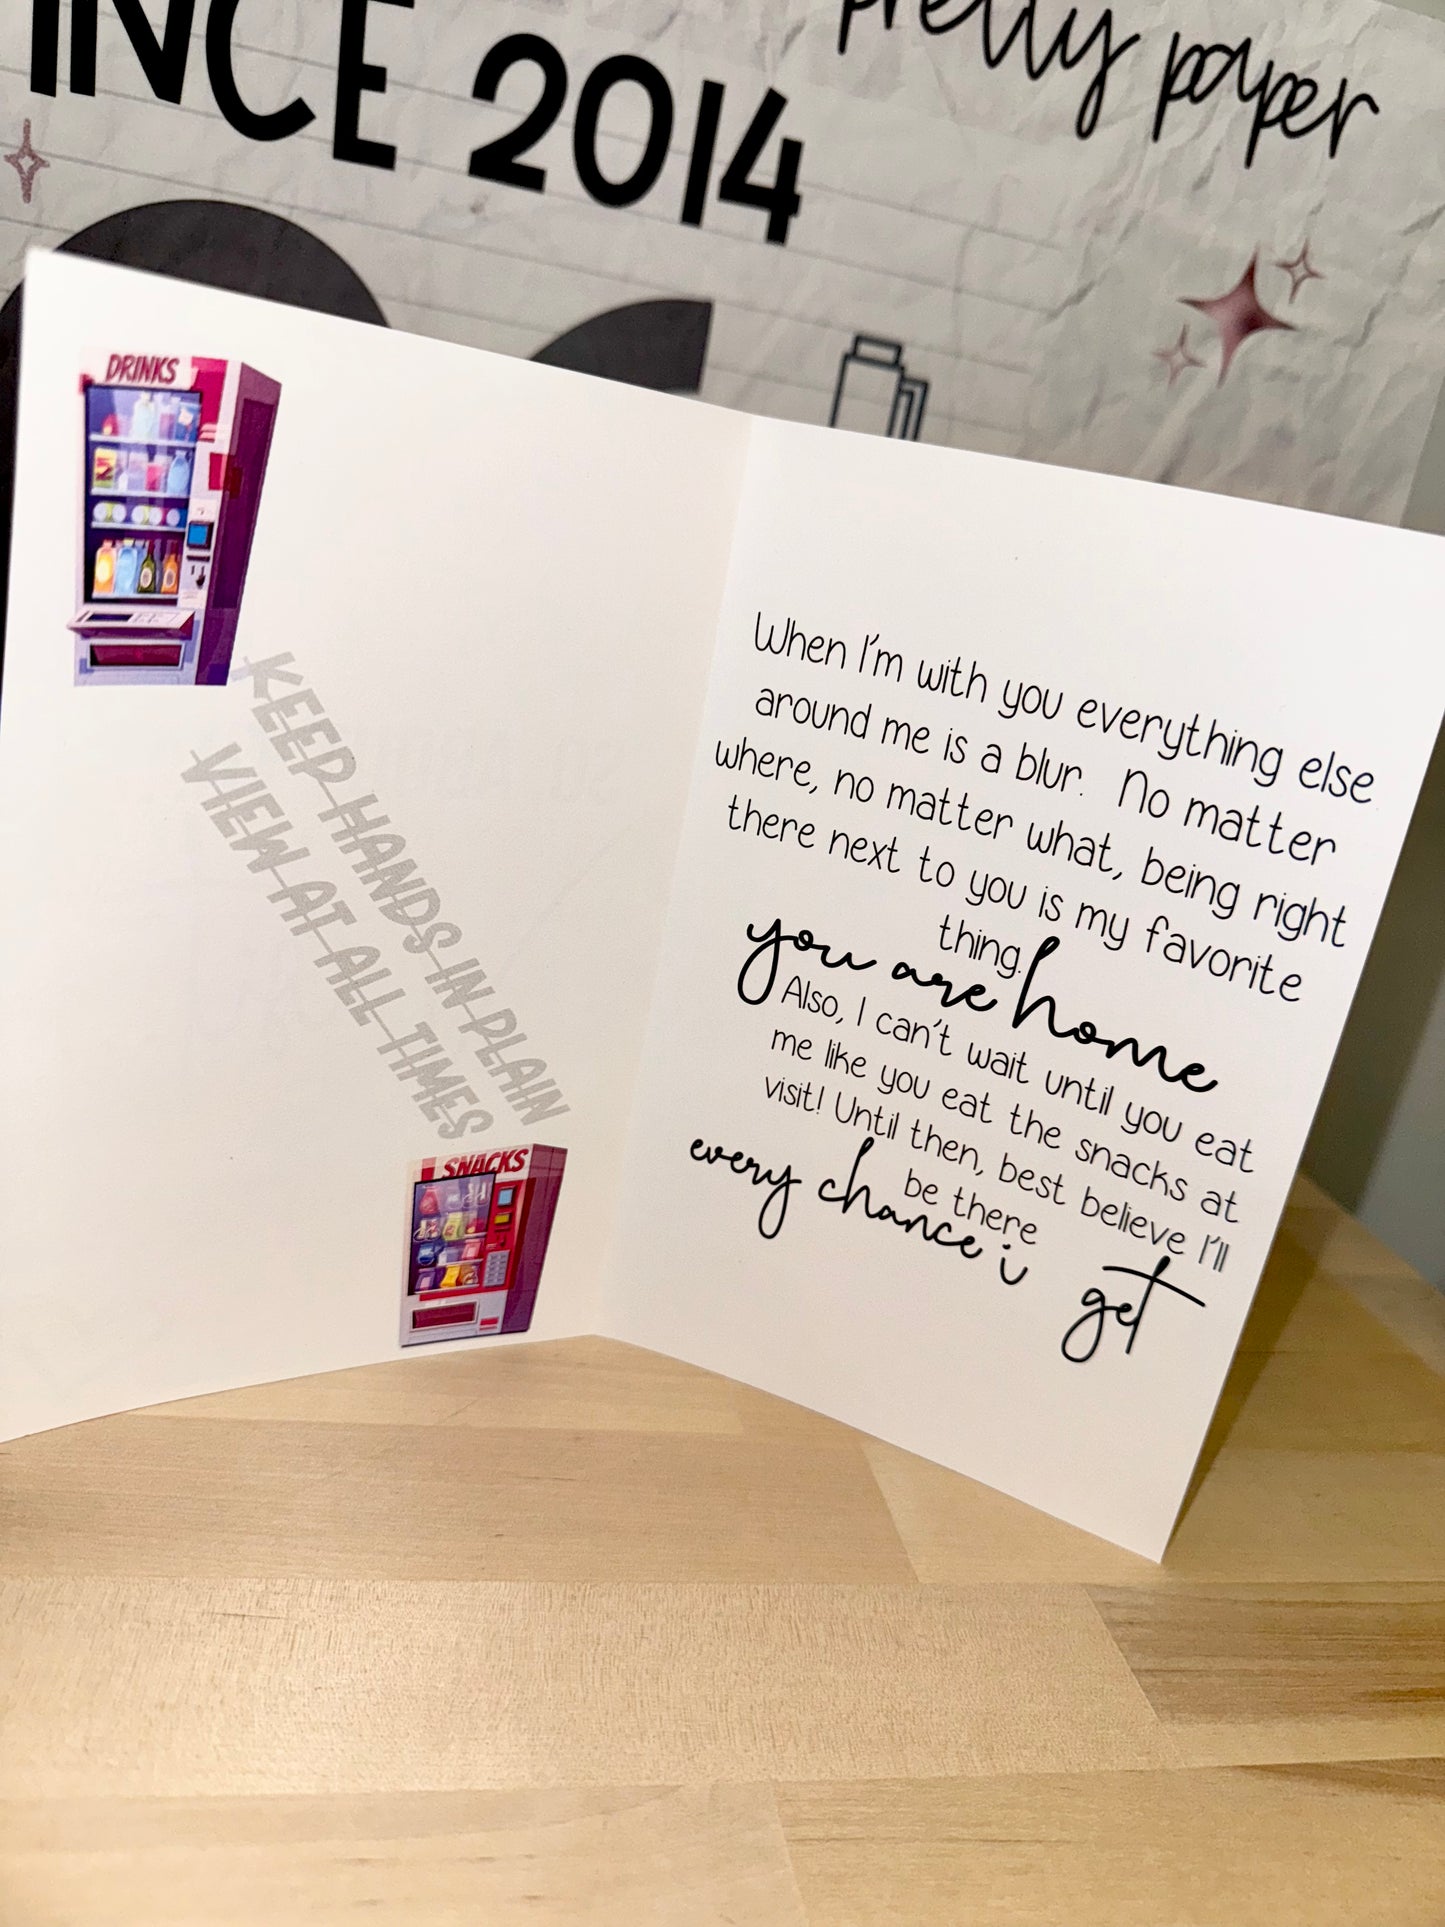 INCE 2014
pretty paper
DRINKS
KEEP HANDS IN PLAIN
VIEW AT ALL TIMES
SNACKS
When I'm with you everything else
around me is a blur. No matter
where, no matter what, being right
there next to you is my favorite
thing.
you are home
Also, I can't wait until you eat
me like you eat the snacks at
visit! Until then, best believe I'll
be there
every chance i get